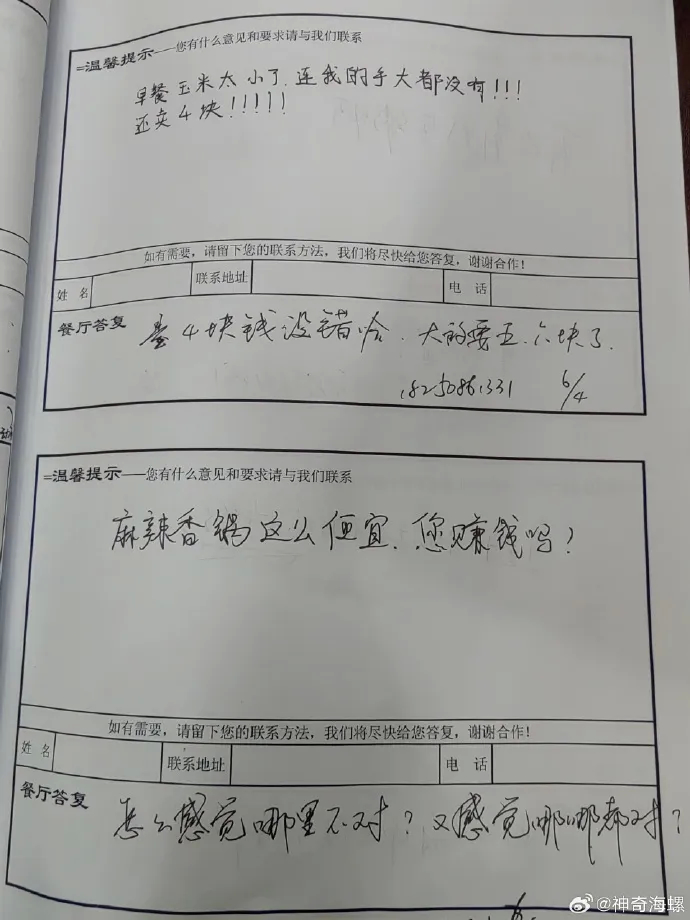 =温馨提示——您有什么意见和要求请与我们联系
早餐玉米太小了，连我的手大都没有!!!
还卖4块!!!!!
如有需要，请留下您的联系方法，我们将尽快给您答复，谢谢合作！
姓 名 联系地址 电 话
餐厅答复 4块钱没错哈、大的要五.六块了.
18250861331 6/4
=温馨提示——您有什么意见和要求请与我们联系
麻辣香锅这么便宜、您赚钱吗？
如有需要，请留下您的联系方法，我们将尽快给您答复，谢谢合作！
姓 名 联系地址 电 话
餐厅答复 怎么感觉哪里不对？又感觉哪哪都对？
@神奇海螺